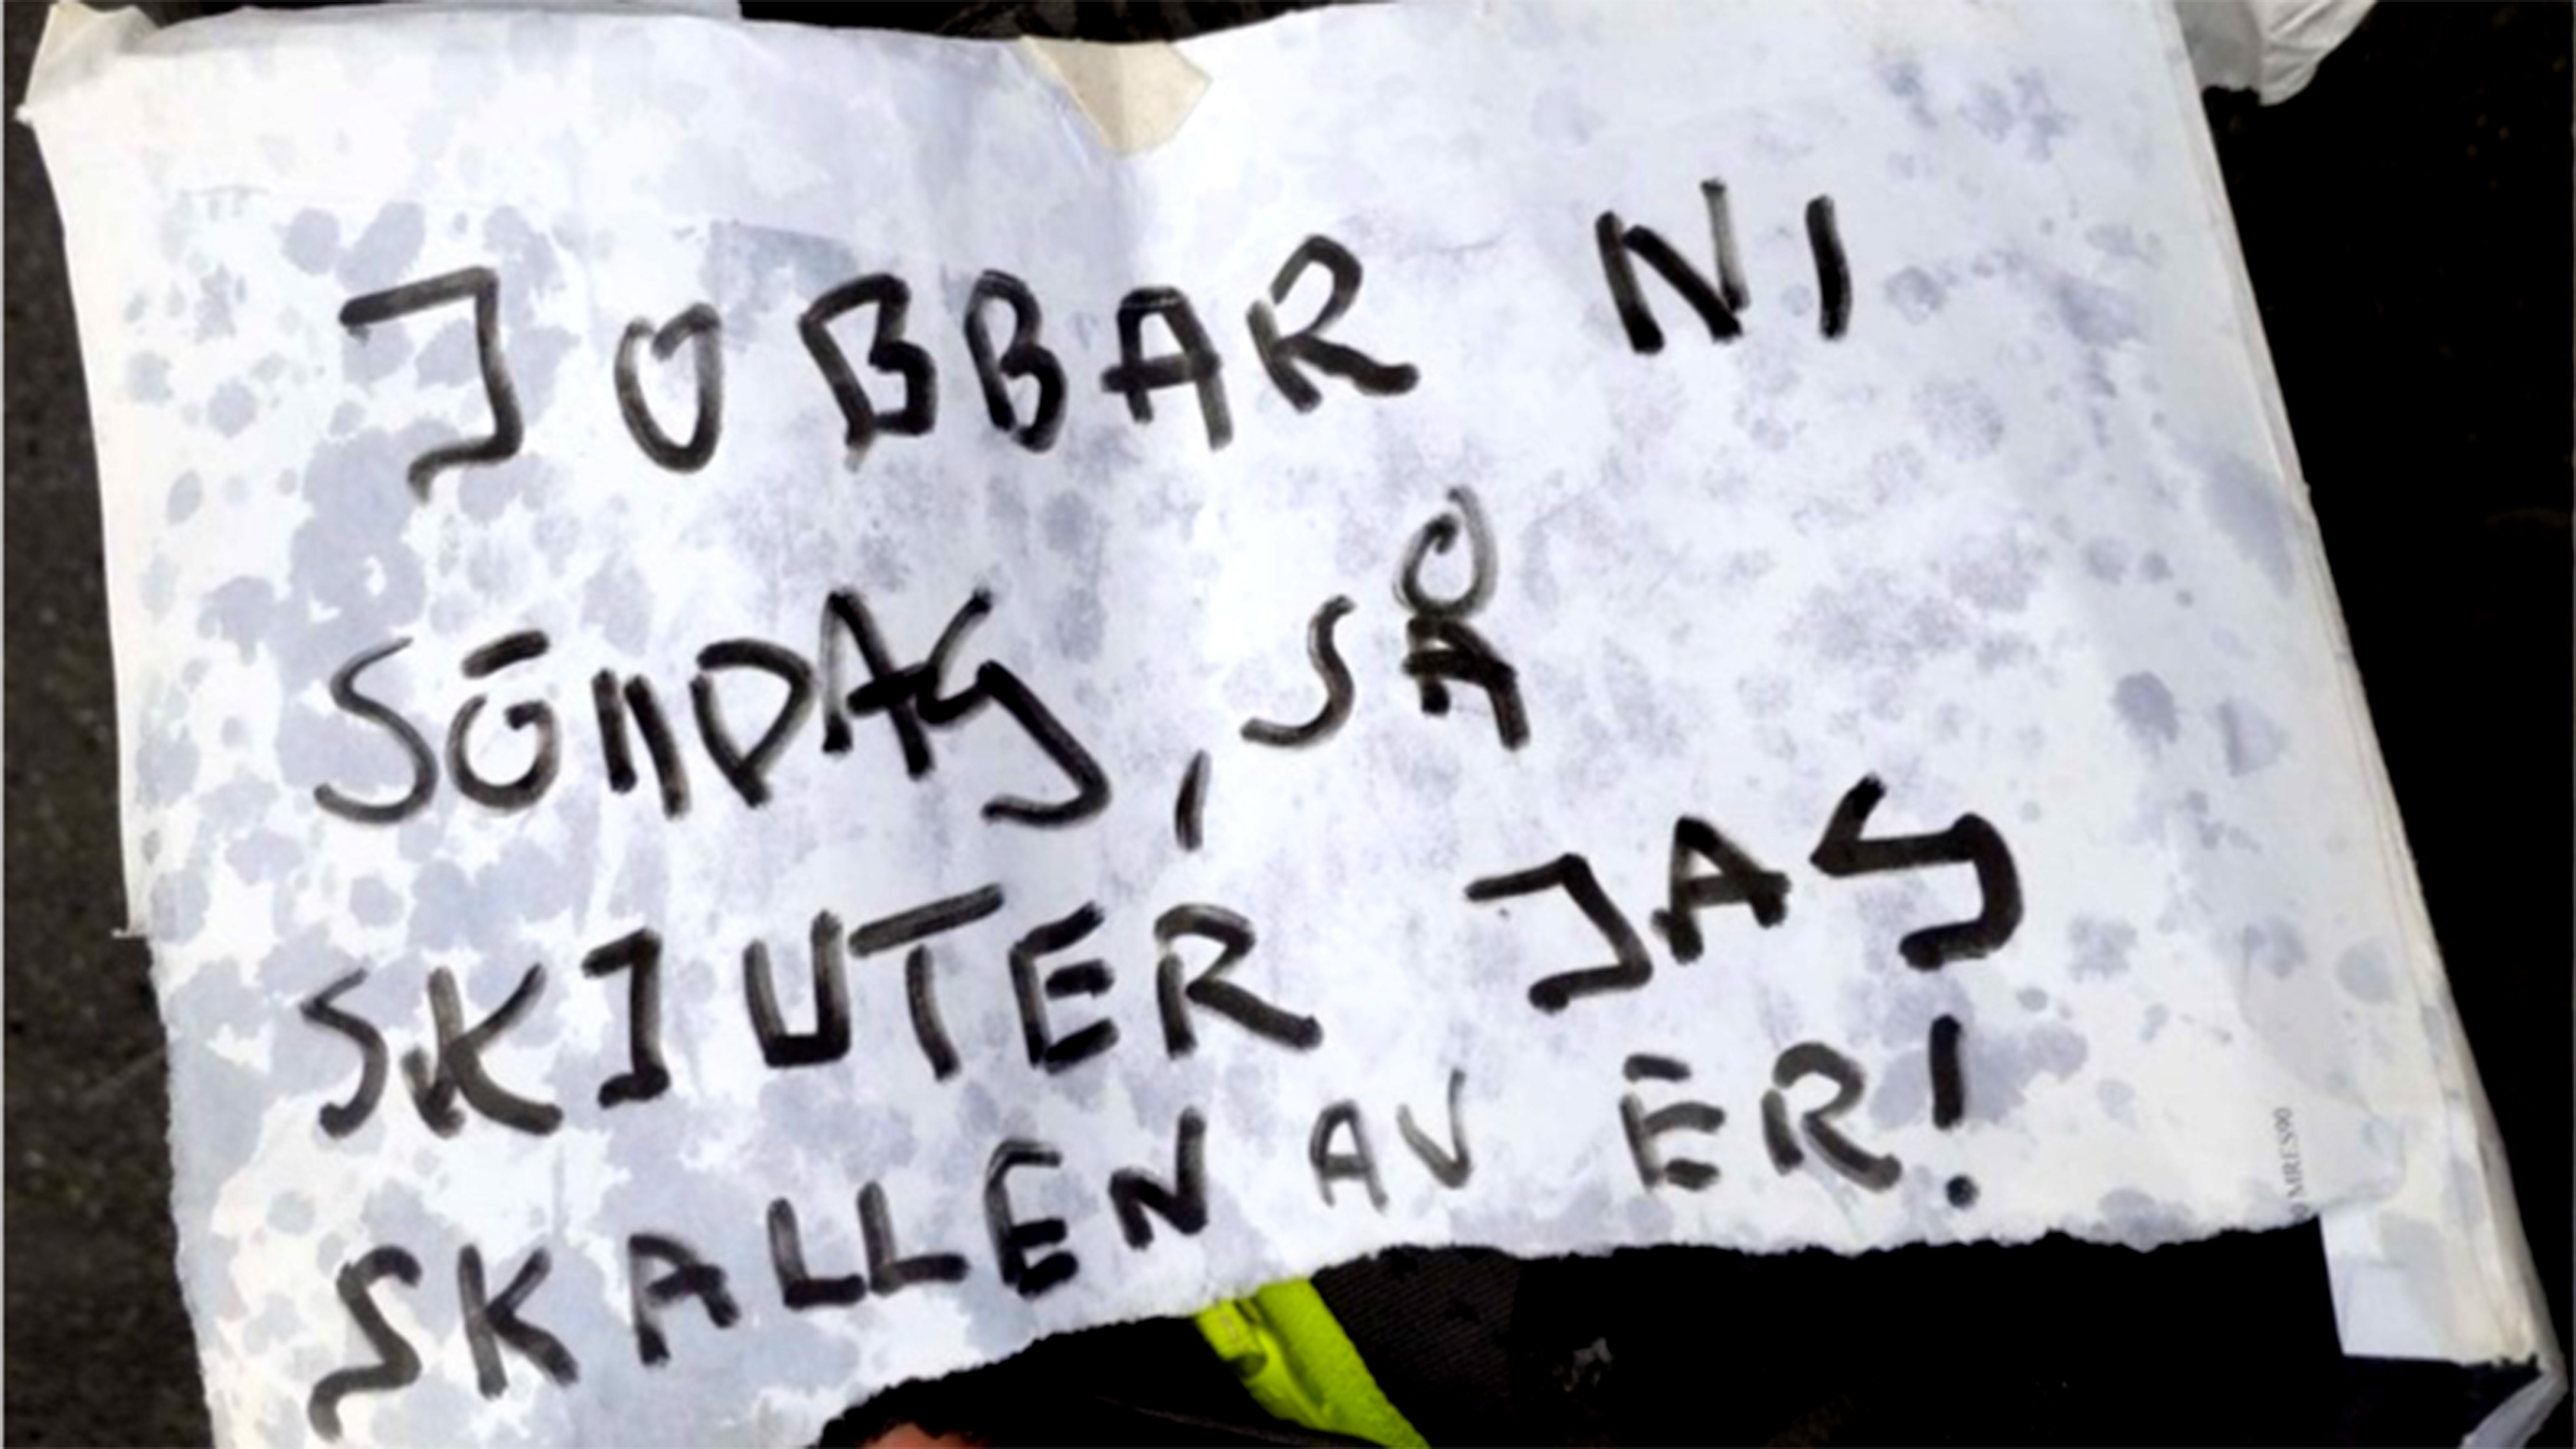 JOBBAR NI
SÖNDAG, SÅ
SKJUTER JAG
SKALLEN AV ER!
MRES90